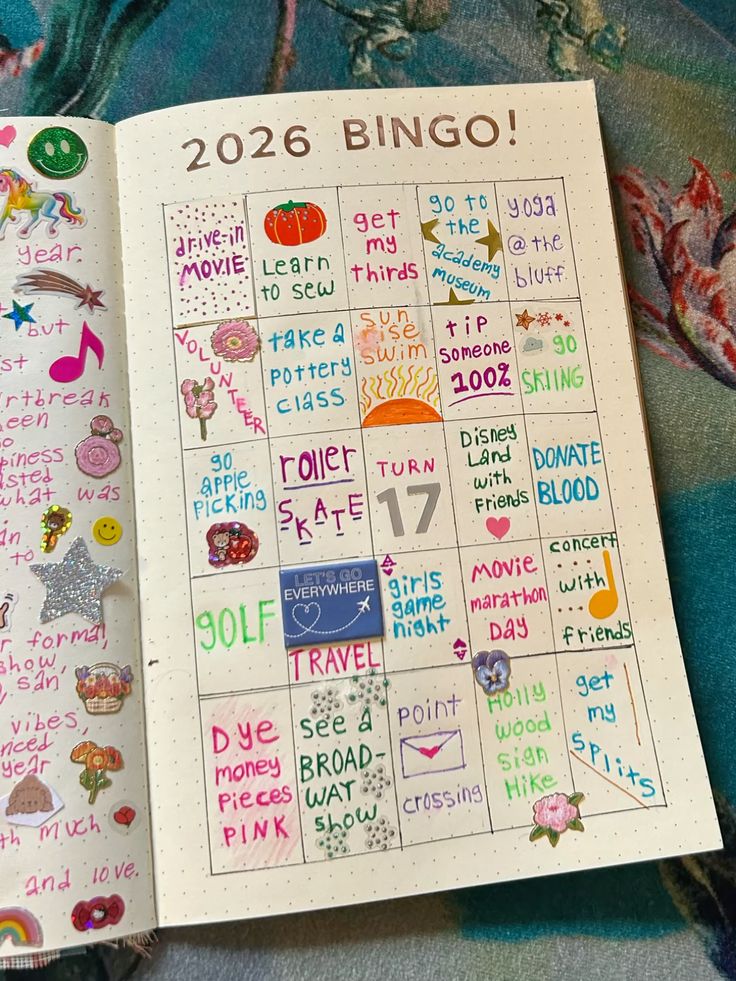 year.
but
st
rtbreak
een
o
piness
sted
what was
an
to
r formal,
show,
, san
vibes,
nced
year
th much
and love.
2026 BINGO!
drive-in
MOVIE
Learn
to sew
get
my
thirds
go to
the
academy
museum
yoga
@ the
bluff
VOLUNTEER
take a
pottery
class
sun
rise
swim
tip
someone
100%
go
SKIING
go
apple
picking
roller
SKATE
TURN
17
Disney
Land
with
Friends
DONATE
BLOOD
GOLF
LET'S GO
EVERYWHERE
TRAVEL
girls
game
night
movie
marathon
Day
concert
with
friends
Dye
money
pieces
PINK
see a
BROAD-
WAY
show
point
crossing
Holly
wood
sign
Hike
get
my
splits